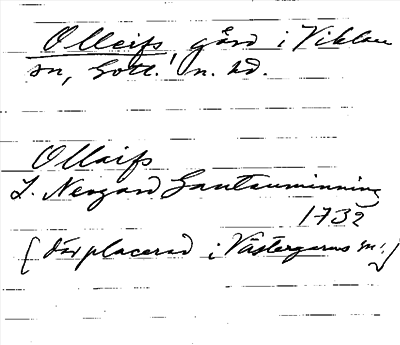 Olleifs, gård i Viklau
sn, Gotl. n. hd.
Ollaifs
L. Nergard Santauminning
1732
(där placerad i Västergarns sn.)